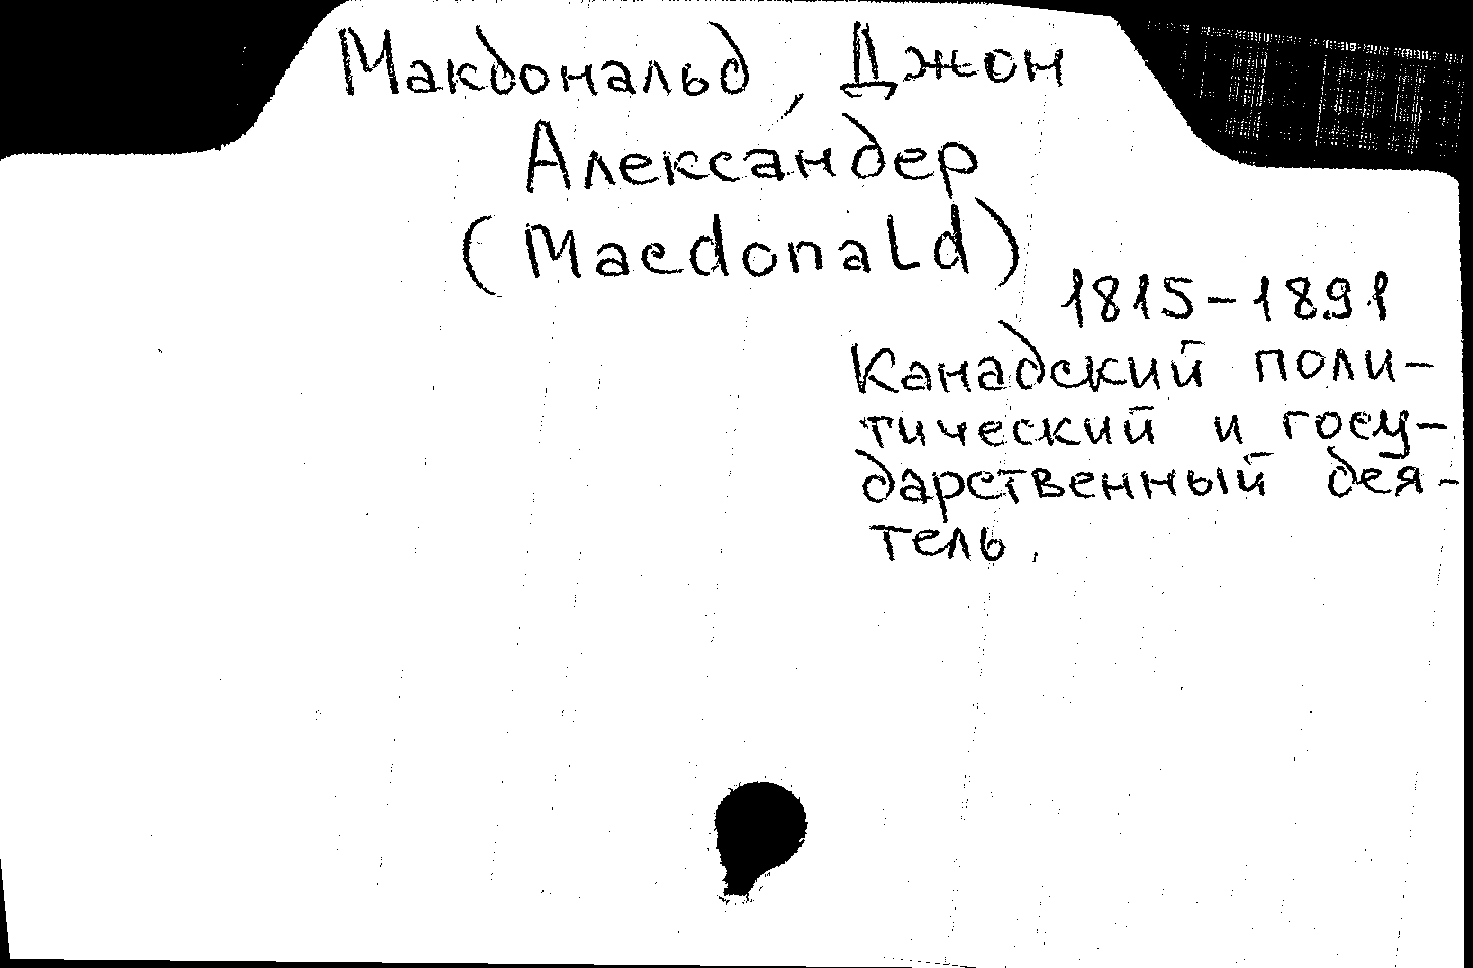 Макдональд, Джон
Александер
(Macdonald)
1815-1891
Канадский поли-
тический и госу-
дарственный дея-
тель.